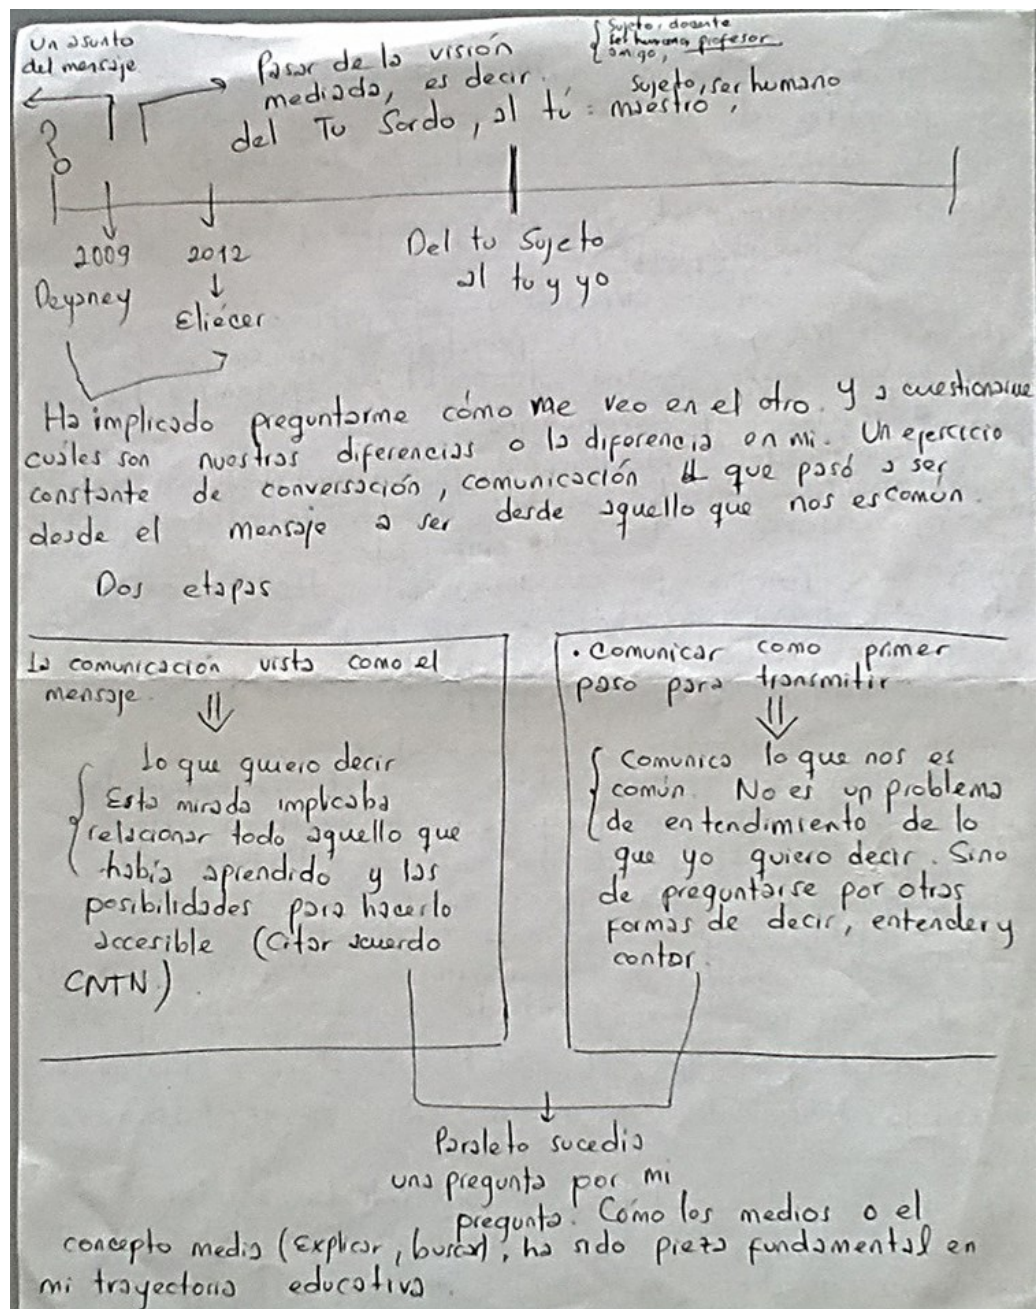 Un asunto
del mensaje
Sujeto, docente
ser humano, profesor,
amigo,
Pasar de la visión
mediada, es decir.
sujeto, ser humano
del Tu Sordo, al tú: maestro,
?
2009
2012
Deyaney
Eliécer
Del tu Sujeto
al tu y yo
Ha implicado preguntarme cómo me veo en el otro. Y a cuestionarme
cuáles son nuestras diferencias o la diferencia en mi. Un ejercicio
constante de conversación, comunicación que pasó a ser
desde el mensaje a ser desde aquello que nos es común.
Dos etapas
La comunicación vista como el
mensaje.
Lo que quiero decir
Esta mirada implicaba
relacionar todo aquello que
había aprendido y las
posibilidades para hacerlo
accesible (Citar acuerdo
CNTN)
• Comunicar como primer
paso para transmitir
Comunico lo que nos es
común. No es un problema
de entendimiento de lo
que yo quiero decir. Sino
de preguntarse por otras
formas de decir, entender y
contar.
Paralelo sucedia
una pregunta por mi
pregunta. Cómo los medios o el
concepto medio (Explicar, buscar), ha sido pieza fundamental en
mi trayectoria educativa.